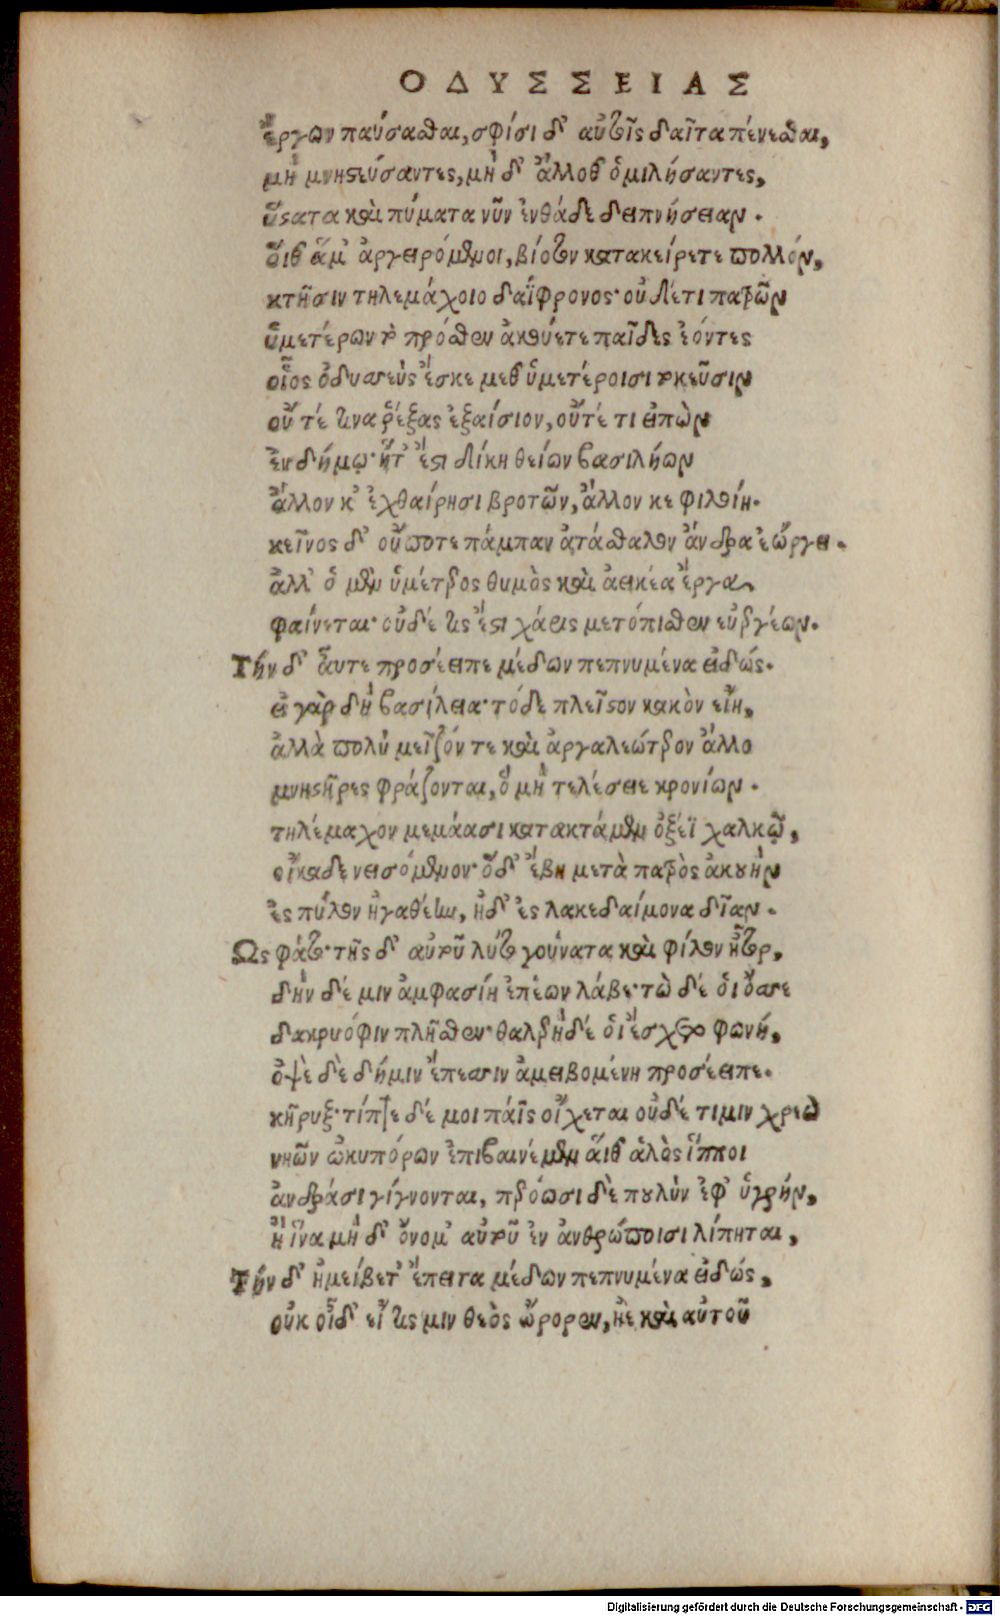 ΟΔΥΣΣΕΙΑΣ
ἔργων παύσασθαι, σφίσι δ' αὐτοῖς δαῖτα πένεσθαι,
μὴ μνηστεύσαντες, μὴ δ' ἄλλοθ' ὁμιλήσαντες,
ὕστατα καὶ πύματα νῦν ἐνθάδε δειπνήσειαν.
οἵθ' ἅμ' ἀγειρόμενοι, βίοτον κατακείρετε πολλόν,
κτῆσιν τηλεμάχοιο δαΐφρονος· οὐδέτι πατρῶν
ὑμετέρων τὸ πρόσθεν ἀκούετε παῖδες ἐόντες
οἷος ὀδυσσεὺς ἔσκε μεθ' ὑμετέροισι τοκεῦσιν
οὔτέ τινα ῥέξας ἐξαίσιον, οὔτέ τι εἰπὼν
ἐν δήμῳ· ἥτ' ἐστὶ δίκη θείων βασιλήων
ἄλλον κ' ἐχθαίρησι βροτῶν, ἄλλον κε φιλοίη.
κεῖνος δ' οὔποτε πάμπαν ἀτάσθαλον ἄνδρα ἐώργει.
ἀλλ' ὁ μὲν ὑμέτερος θυμὸς καὶ ἀεικέα ἔργα
φαίνεται· οὐδέ τίς ἐστι χάρις μετόπισθεν εὐεργέων.
Τήν δ' αὖτε προσέειπε μέδων πεπνυμένα εἰδώς.
εἰ γὰρ δὴ βασίλεια· τόδε πλεῖστον κακὸν εἴη,
ἀλλὰ πολὺ μεῖζόν τε καὶ ἀργαλεώτερον ἄλλο
μνηστῆρες φράζονται, ὃ μὴ τελέσειε κρονίων.
τηλέμαχον μεμάασι κατακτάμεν ὀξέϊ χαλκῷ,
οἴκαδε νεισόμενον· ὅδ' ἔβη μετὰ πατρὸς ἀκουὴν
ἐς πύλον ἠγαθέην, ἠδ' ἐς λακεδαίμονα δῖαν.
Ως φάτο· τῆς δ' αὐτοῦ λύτο γούνατα καὶ φίλον ἦτορ,
δὴν δέ μιν ἀμφασίη ἐπέων λάβε· τὼ δέ οἱ ὄσσε
δακρυόφιν πλῆσθεν· θαλερὴ δέ οἱ ἔσχετο φωνή,
ὀψὲ δὲ δήμιν ἔπεσσιν ἀμειβομένη προσέειπε.
κῆρυξ· τίπτε δέ μοι πάϊς οἴχεται οὐδέ τιμιν χρεὼ
νηῶν ὠκυπόρων ἐπιβαινέμεν αἵθ' ἁλὸς ἵπποι
ἀνδράσι γίγνονται, περόωσι δὲ πουλὺν ἐφ' ὑγρήν,
ἢ ἵνα μὴ δ' ὄνομ' αὐτοῦ ἐν ἀνθρώποισι λίπηται,
Τήν δ' ἠμείβετ' ἔπειτα μέδων πεπνυμένα εἰδώς,
οὐκ οἶδ' εἴ τίς μιν θεὸς ὤρορεν, ἠὲ καὶ αὐτοῦ
Digitalisierung gefördert durch die Deutsche Forschungsgemeinschaft - DFG